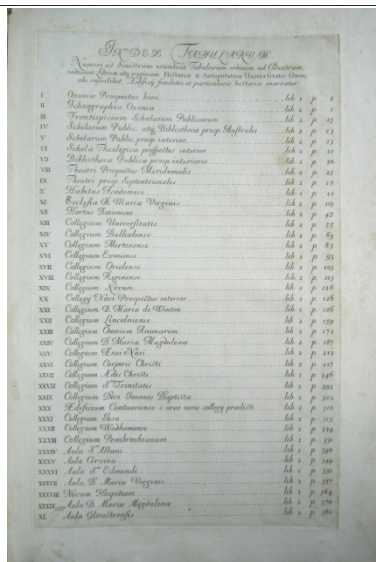 INDEX TABULARUM.
Numeri ad Sinistram ostendunt Tabularum ordinem ad Dextram
indicant Librum atq paginam Historiæ & Antiquitatum Universitatis Oxon.
ubi Ædificij fundatio et particularis historia enarratur
I Oxoniæ Prospectus bini lib 1 p 1
II Ichnographia Oxoniæ lib 1 p
III Frontispicium Scholarum Publicarum lib 2 p 23
IV Scholarum Public. atq Bibliothecæ prosp. Australis lib 2 p 23
V Scholarum Public. prosp interior lib 2 p 23
VI Schola Theologica prospectus interior lib 2 p 21
VII Bibliotheca Publica prosp interiores lib 2 p 50
VIII Theatri Prospectus Meridionalis lib 2 p 25
IX Theatri prosp. Septentrionalis lib 2 p
X Habitus Academici lib 2 p
XI Ecclesia B. Mariæ Virginis lib 2 p
XII Hortus Botanicus lib 2 p 45
XIII Collegium Universitatis lib 2 p 55
XIV Collegium Balliolense lib 2 p 69
XV Collegium Mertonense lib 2 p 85
XVI Collegium Exoniense lib 2 p 93
XVII Collegium Orielense lib 2 p 103
XVIII Collegium Reginense lib 2 p 115
XIX Collegium Novum lib 2 p 126
XX Collegij Novi Prospectus interior lib 2 p 126
XXI Collegium B. Mariæ de Winton lib 2 p 126
XXII Collegium Lincolniense lib 2 p 159
XXIII Collegium Omnium Animarum lib 2 p 172
XXIV Collegium B. Mariæ Magdalenæ lib 2 p 187
XXV Collegium Ænei Nasi lib 2 p 212
XXVI Collegium Corporis Christi lib 2 p 227
XXVII Collegium Ædis Christi lib 2 p 246
XXVIII Collegium Sæ Trinitatis lib 2 p 292
XXIX Collegium Divi Joannis Baptistæ lib 2 p 302
XXX Ædificium Cantuariense e area nova collegij prædicti lib 2 p 310
XXXI Collegium Jesu lib 2 p 315
XXXII Collegium Wadhamense lib 2 p 324
XXXIII Collegium Pembrochianum lib 2 p 331
XXXIV Aula Sti Albani lib 2 p 340
XXXV Aula Cervina lib 2 p 344
XXXVI Aula Sti Edmundi lib 2 p 351
XXXVII Aula B. Mariæ Virginis lib 2 p 357
XXXVIII Novum Hospitium lib 2 p 364
XXXIX Aula B. Mariæ Magdalenæ lib 2 p 370
XL Aula Glocestrensis lib 2 p 361